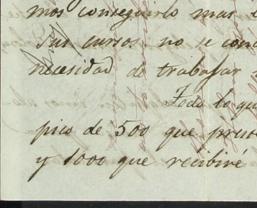 mos conseguirlo mas
sus cursos no se
necesidad de trabajar
Todo lo que
pico de 500 que
y 1000 que recibiré